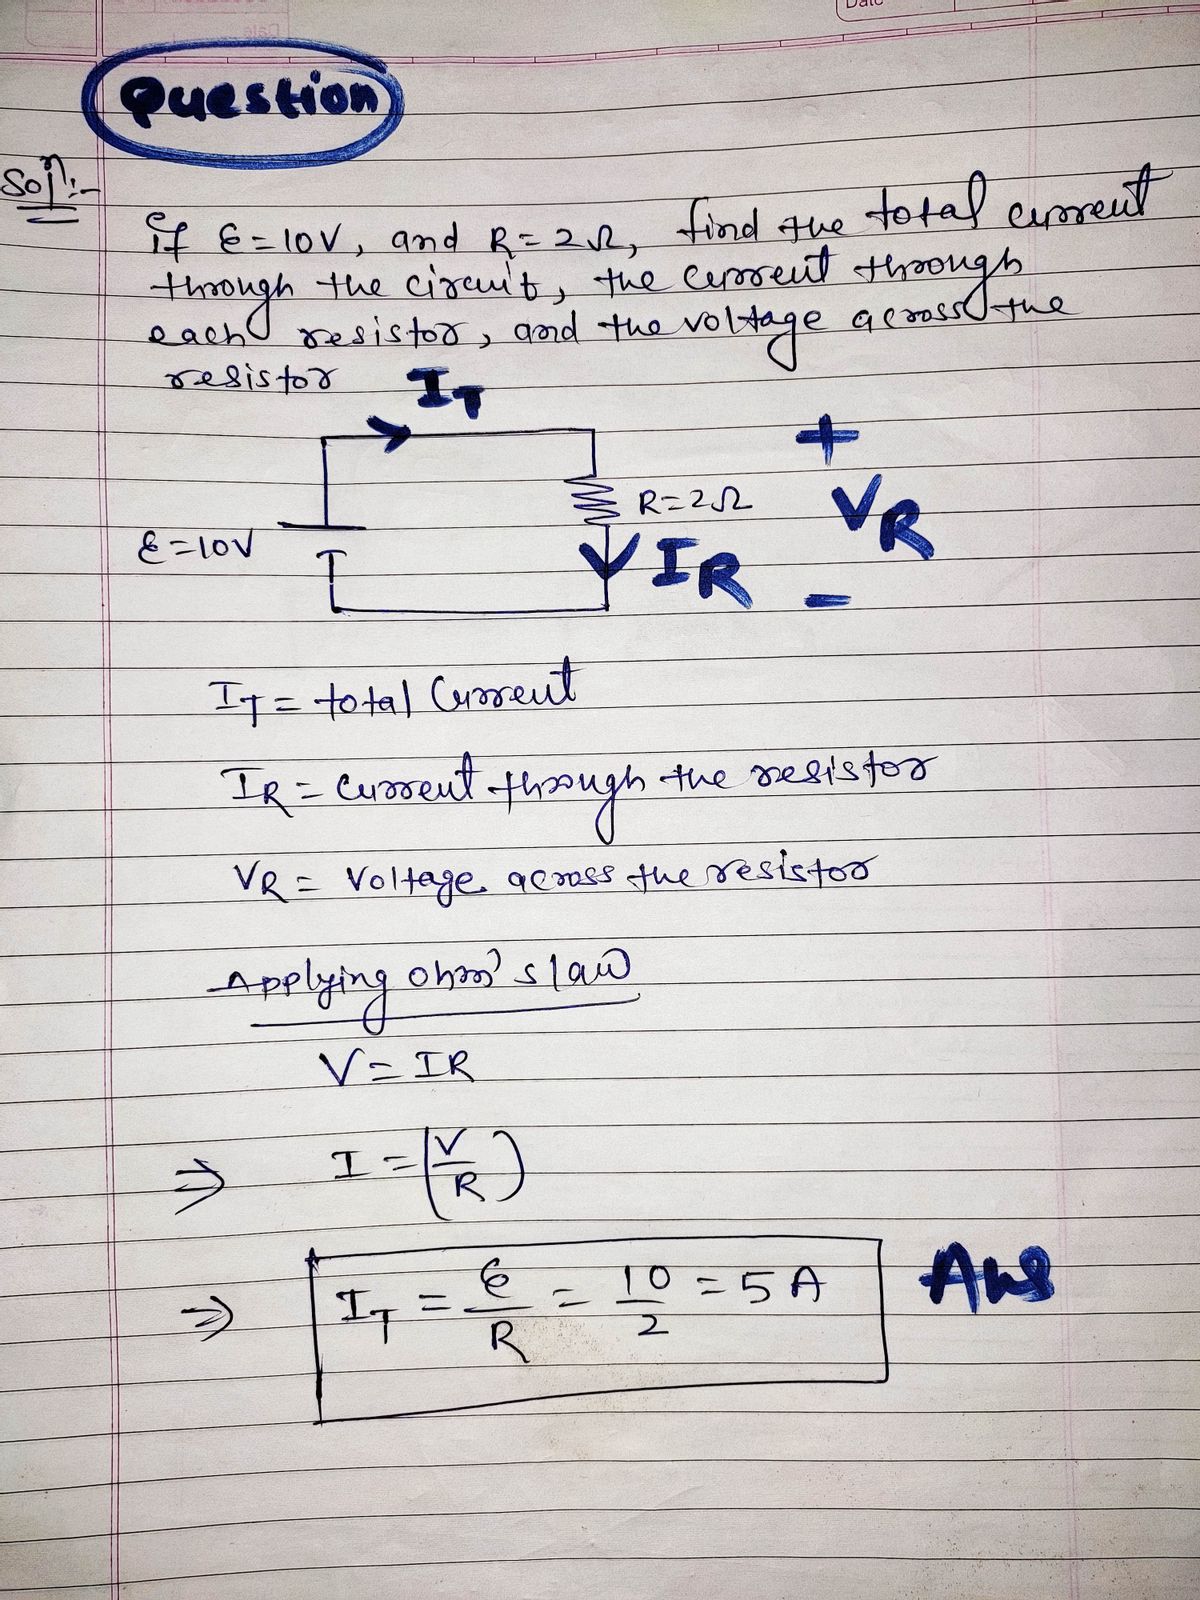 Date
Question
Soln:-
If ε=10V, and R=2Ω, find the total current
through the circuit, the current through
each resistor, and the voltage across the
resistor
I_T
+
R=2Ω
V_R
ε=10V
I_R
-
I_T = total Current
I_R = Current through the resistor
V_R = Voltage across the resistor
Applying ohm's law
V=IR
⇒ I=(V/R)
⇒ I_T = ε/R = 10/2 = 5A Ans